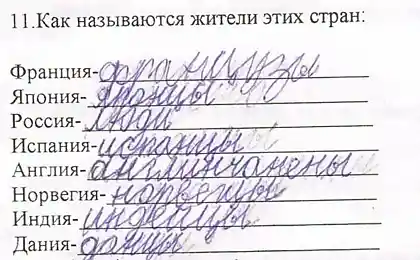 11.Как называются жители этих стран:
Франция-французы
Япония-японцы
Россия-люди
Испания-испанцы
Англия-англинчанены
Норвегия-норвежцы
Индия-индейцы
Дания-данцы